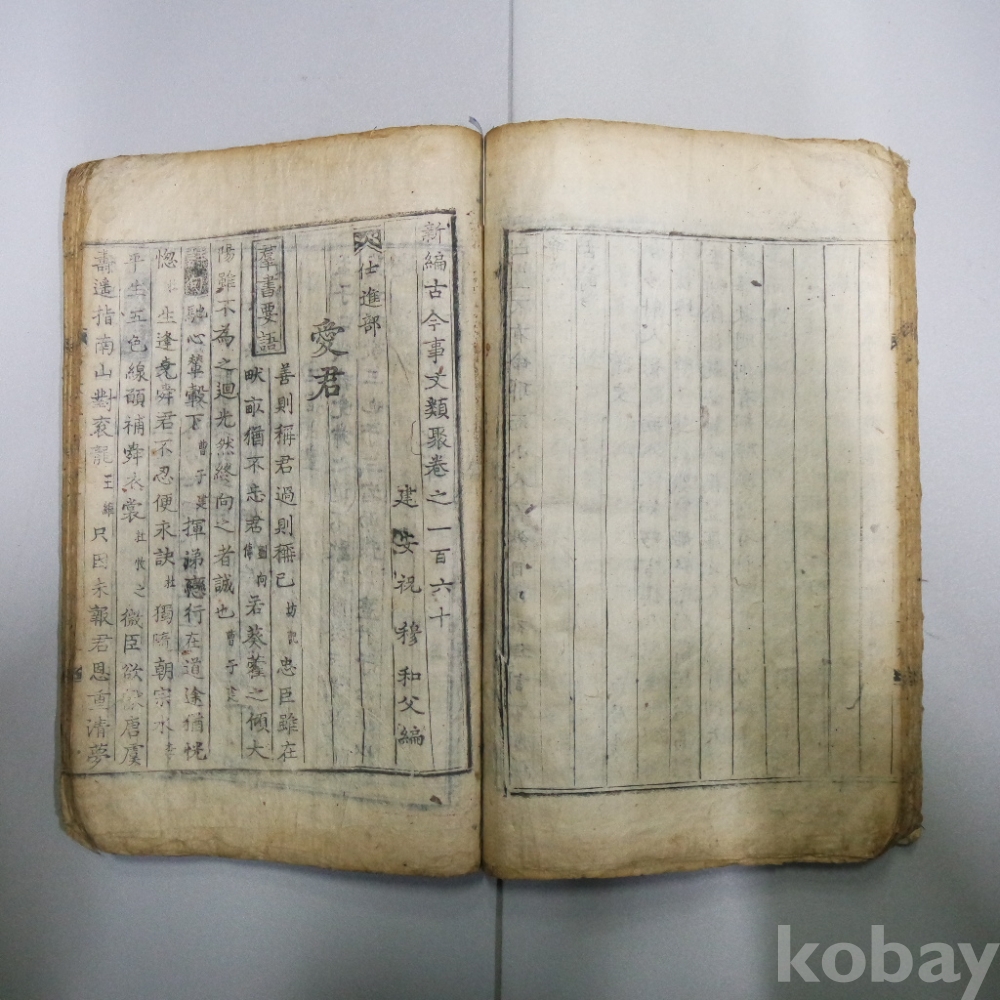 新編古今事文類聚卷之一百六十
建安祝穆和父編
仕進部
愛君
羣書要語 善則稱君過則稱己 坊記 忠臣雖在
畎畝猶不忘君 劉向 若葵藿之傾大
陽雖不為之迴光然終向之者誠也 曹子建
馳心輦轂下 曹子建 揮涕戀行在道途猶恍
惚 生逢堯舜君不忍便永訣 杜 獨臨朝宗水
平生五色線願補舜衣裳 杜牧之 微臣欲 唐虞
壽遙指南山對衮龍 王維 只因未報君恩重清夢
kobay